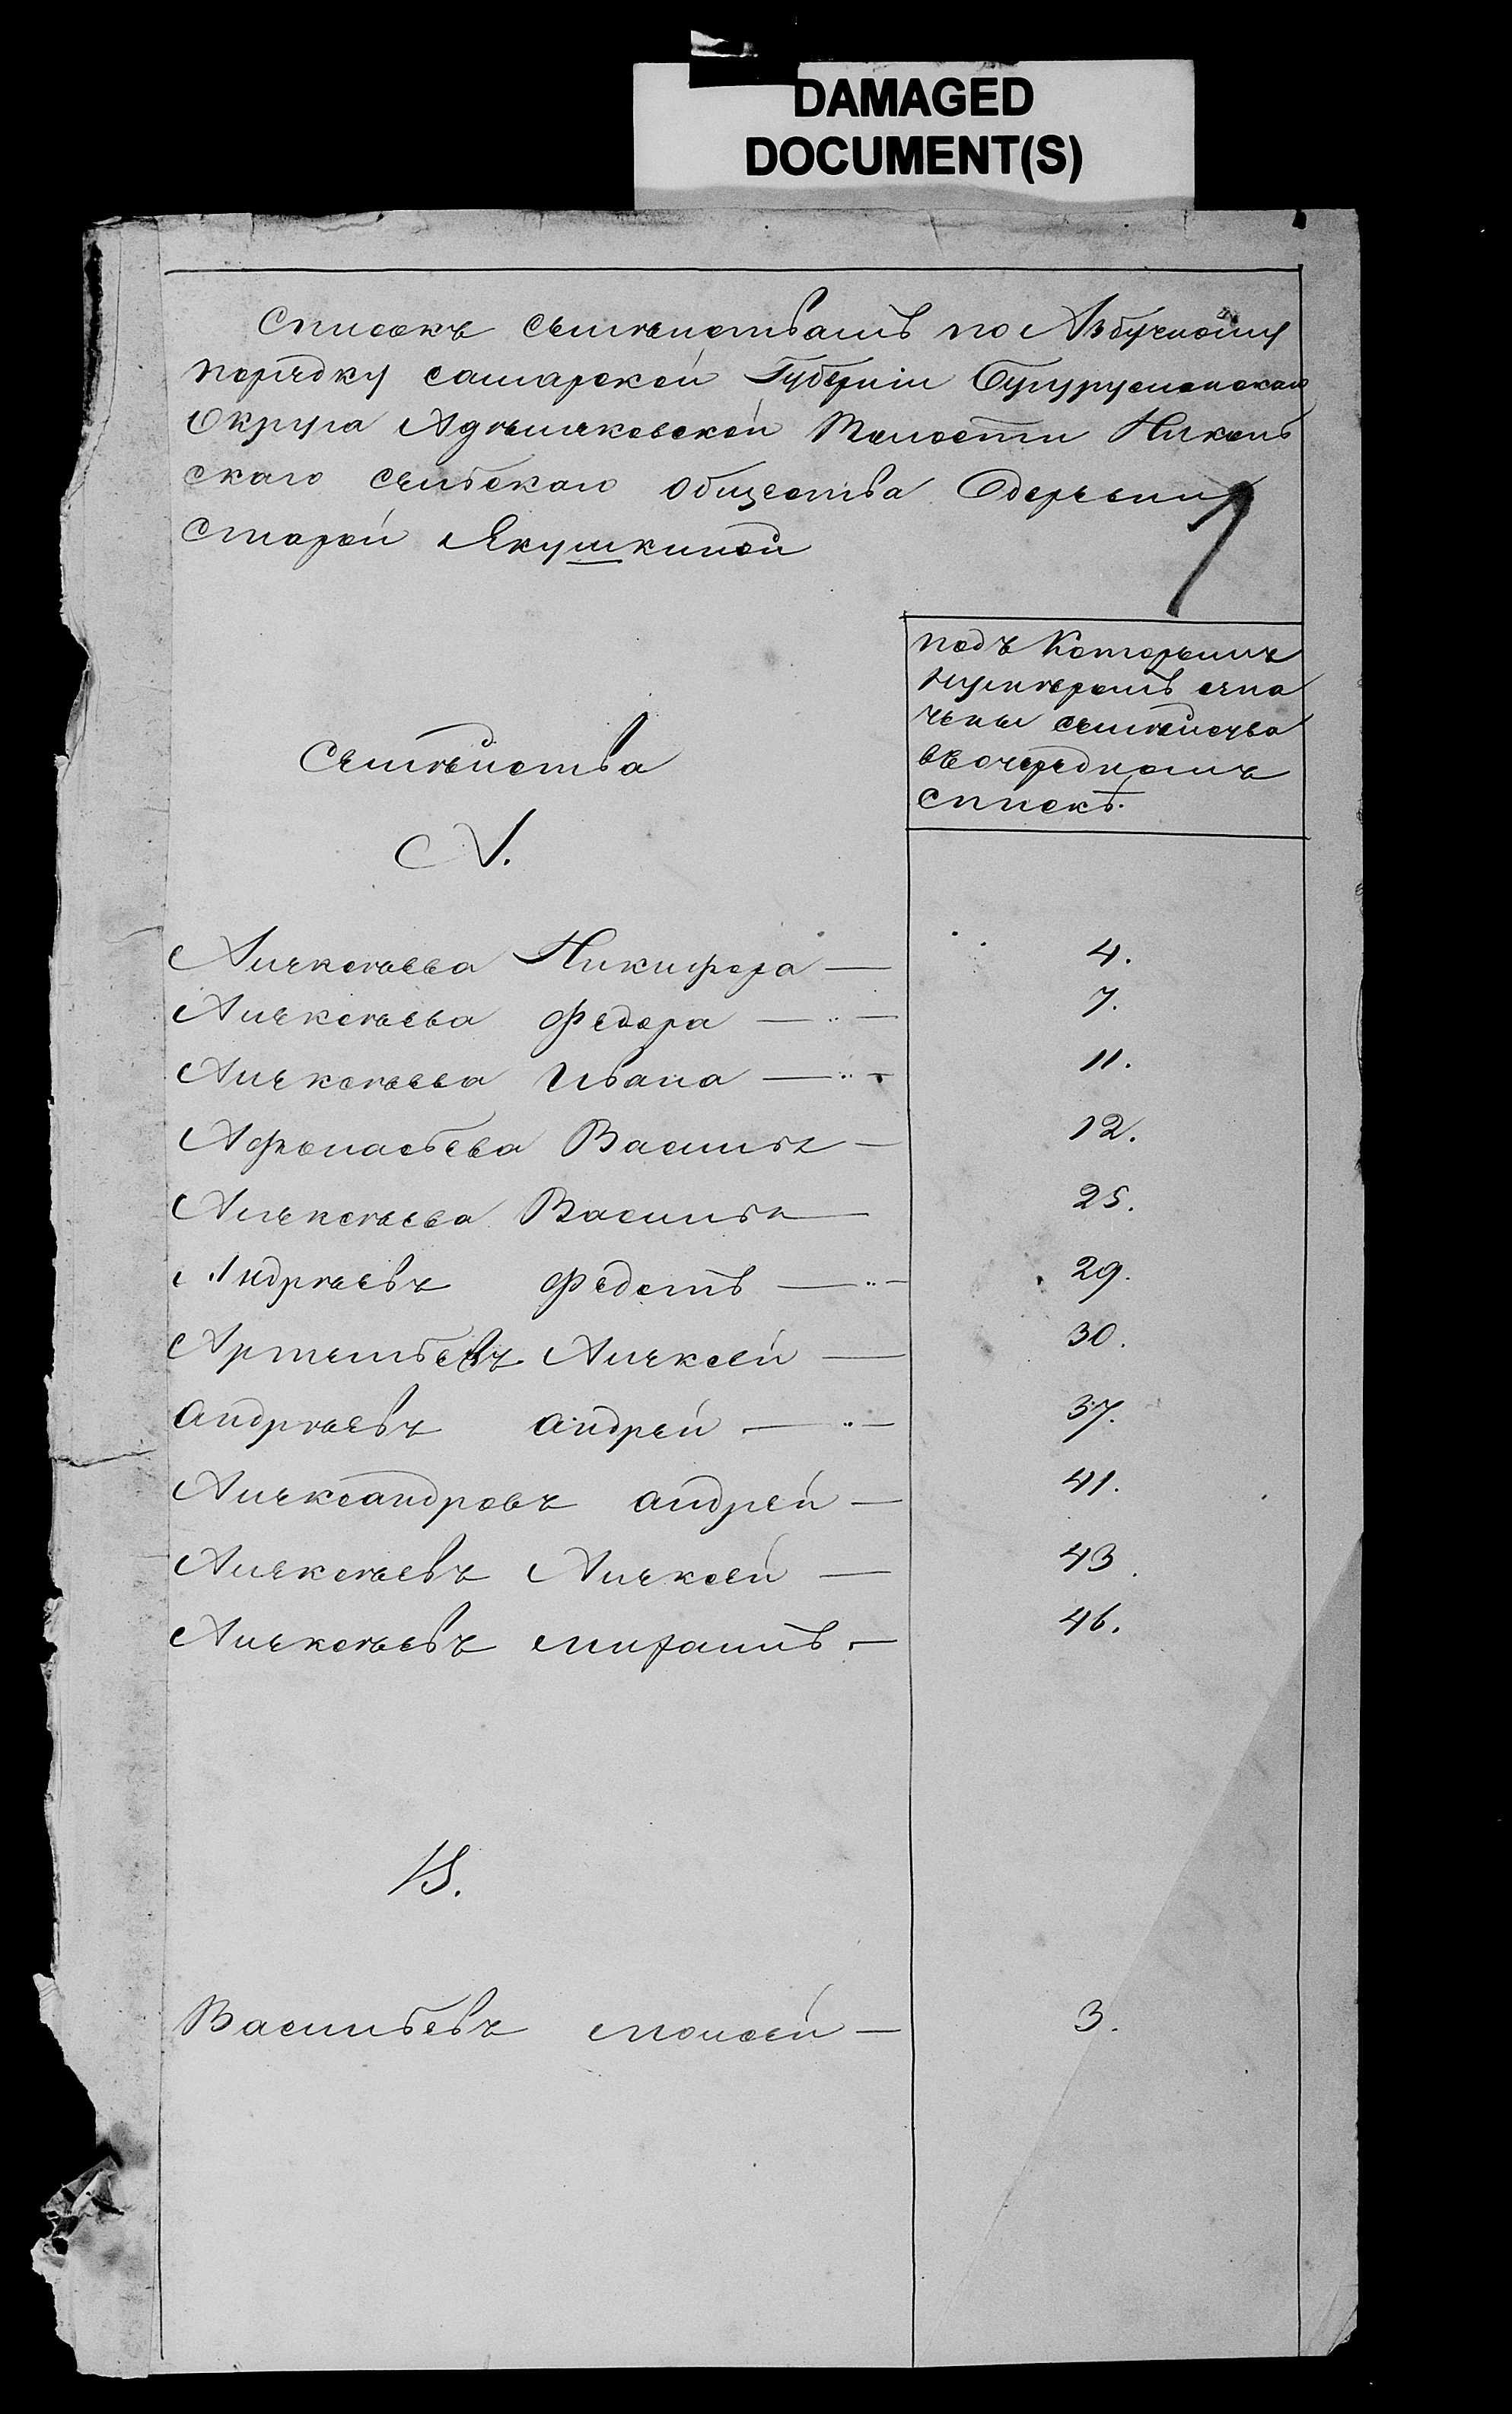 DAMAGED
DOCUMENT(S)
Списокъ семѣйствамъ по Азбучному
порядку самарской Губерніи Бугурусланскаго
Округа Адѣляковской Волости Николь
скаго сельскаго общества деревни
Старой Якушкиной
подъ Которымъ
нумѣромъ озна
чены семѣйства
въ очередномъ
спискѣ.
Семѣйства
А.
Алексѣева Никифора — 4.
Алексѣева Федора — 7.
Алексѣева Ивана — 11.
Афонасьева Василья — 12.
Алексѣева Василья — 25.
Андрѣевъ Федотъ — 29.
Артемьевъ Алексей — 30.
Андрѣевъ андрей — 37.
Александровъ андрей — 41.
Алексѣевъ Алексей — 43.
Алексѣевъ — 46.
В.
Васильевъ моисей — 3.